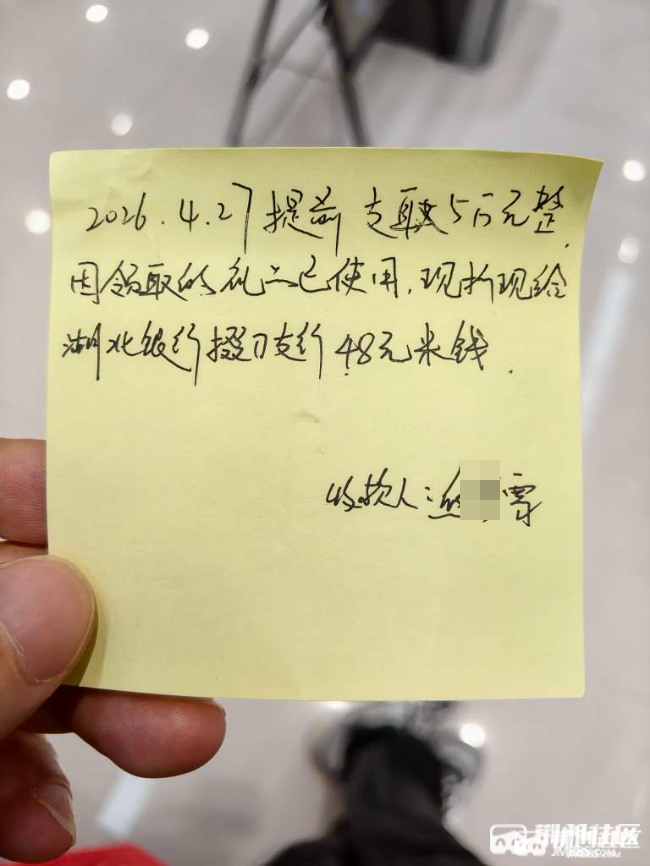 2026.4.27提前支取5万元整.
因领取的礼品已使用,现折现给
湖北银行掇刀支行48元米钱.
收款人:
雪
荆州社区